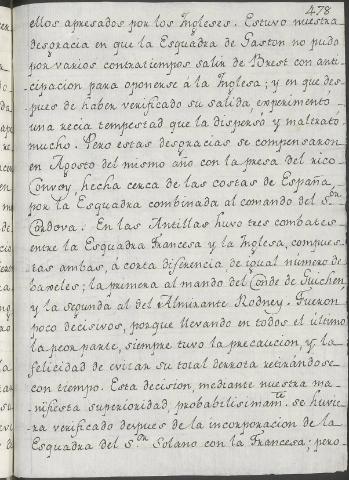 478
ellos apresados por los Ingleses. Estuvo nuestra
desgracia en que la Esquadra de Gaston no pudo
por varios contratiempos salir de Brest con anti-
cipacion para oponerse á la Inglesa; y en que des-
pues de haber verificado su salida, experimentó
una recia tempestad que la dispersó y maltrató
mucho. Pero estas desgracias se compensaron
en Agosto del mismo año con la presa del rico
Convoy hecha cerca de las costas de España
por la Esquadra combinada al comando del S.or
Cordova. En las Antillas huvo tres combates
entre la Esquadra Francesa y la Inglesa, compues-
tas ambas, á corta diferencia, de igual numero de
baxeles; la primera al mando del Conde de Guichen,
y la segunda al del Almirante Rodney. Fueron
poco decisivos, porque llevando en todos el último
la peor parte, siempre tuvo la precaucion, y la
felicidad de evitar su total derrota retirándose
con tiempo. Esta decision, mediante nuestra ma-
nifiesta superioridad, probabilisimam.te se huvie-
ra verificado despues de la incorporacion de la
Esquadra del S.or Solano con la Francesa; pero